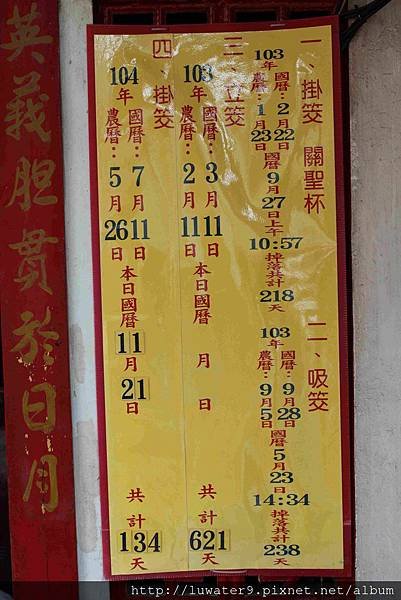 一、掛筊 關聖杯
103年
國曆：2月22日
農曆：1月23日
國曆9月27日上午10:57掉落共計218天
二、吸筊
103年
國曆：9月28日
農曆：9月5日
國曆5月23日14:34掉落共計238天
三、立筊
103年
國曆：3月11日
農曆：2月11日
本日國曆 月 日
共計621天
四、掛筊
104年
國曆：7月11日
農曆：5月26日
本日國曆11月21日
共計134天
英義胆貫於日月
http://luwater9.pixnet.net/album